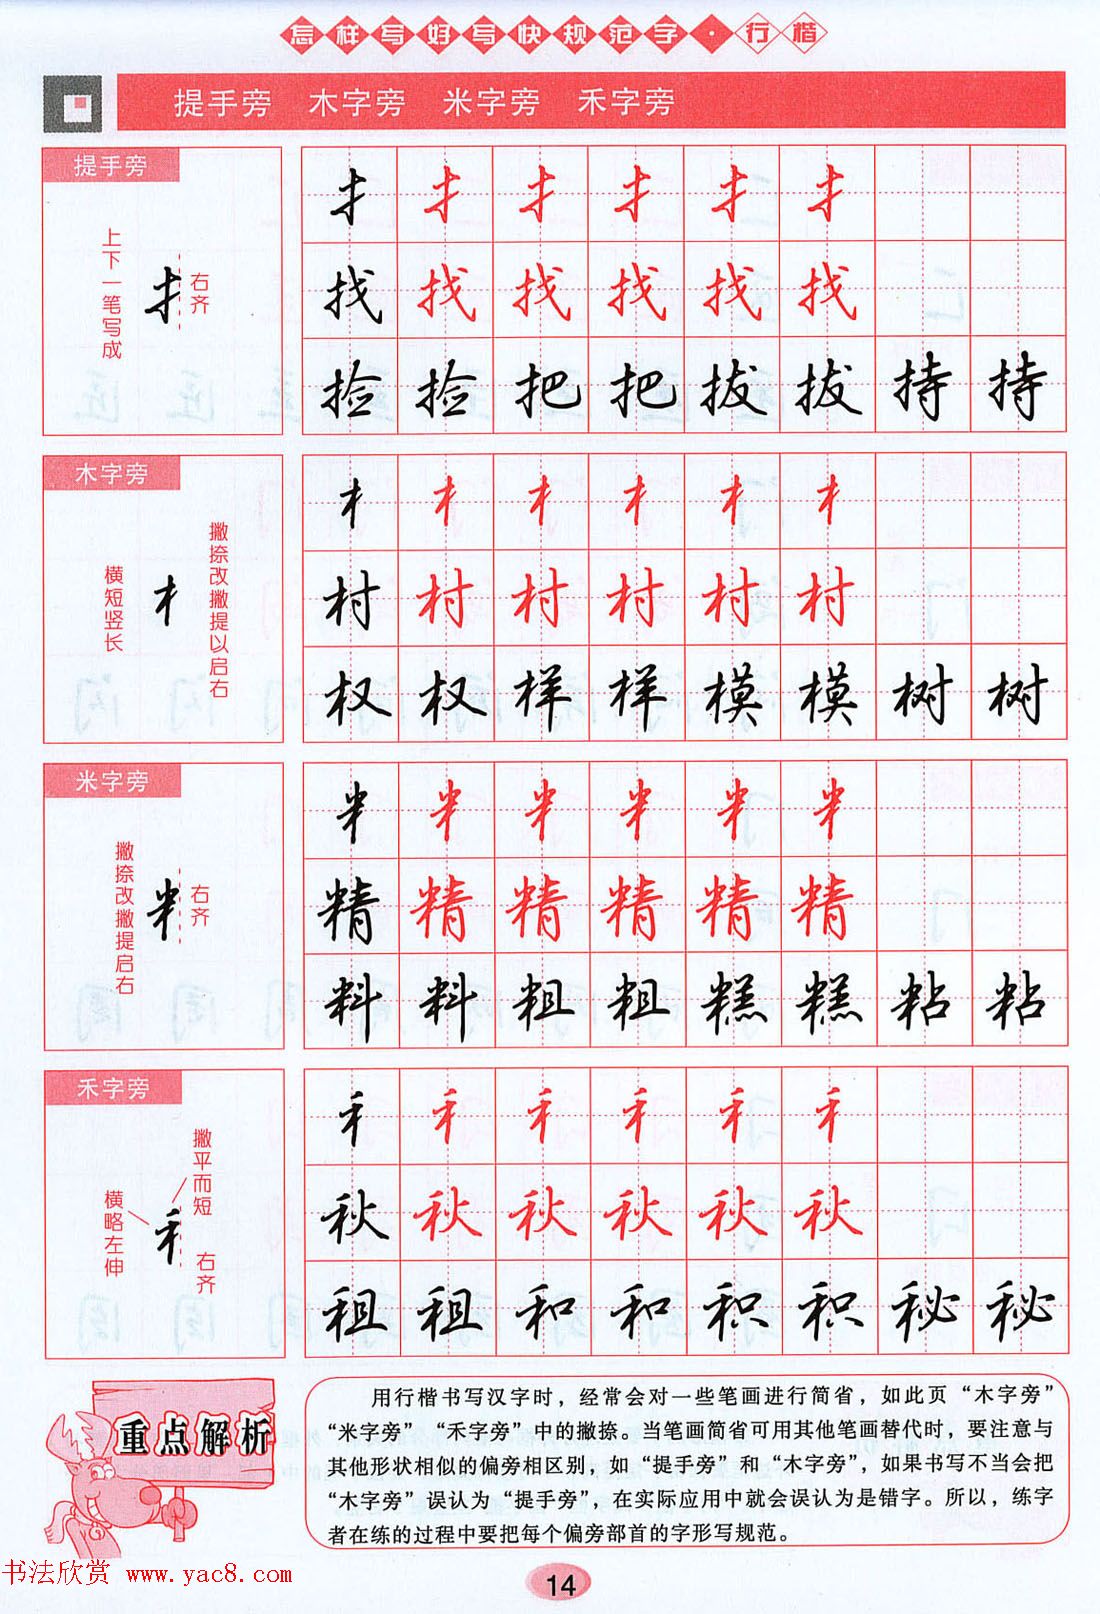 怎样写好写快规范字·行楷
提手旁 木字旁 米字旁 禾字旁
提手旁
上下一笔写成
右齐
扌扌扌扌扌扌
找找找找找找
捡捡把把拔拔持持
木字旁
横短竖长
撇捺改撇提以启右
木木木木木木
村村村村村村
权权样样模模树树
米字旁
撇捺改撇提启右
右齐
米米米米米米
精精精精精精
料料粗粗糕糕粘粘
禾字旁
横略左伸
撇平而短
右齐
禾禾禾禾禾禾
秋秋秋秋秋秋
租租和和积积秘秘
重点解析
用行楷书写汉字时，经常会对一些笔画进行简省，如此页“木字旁”
“米字旁”“禾字旁”中的撇捺。当笔画简省可用其他笔画替代时，要注意与
其他形状相似的偏旁相区别，如“提手旁”和“木字旁”，如果书写不当会把
“木字旁”误认为“提手旁”，在实际应用中就会误认为是错字。所以，练字
者在练的过程中要把每个偏旁部首的字形写规范。
书法欣赏 www.yac8.com
14